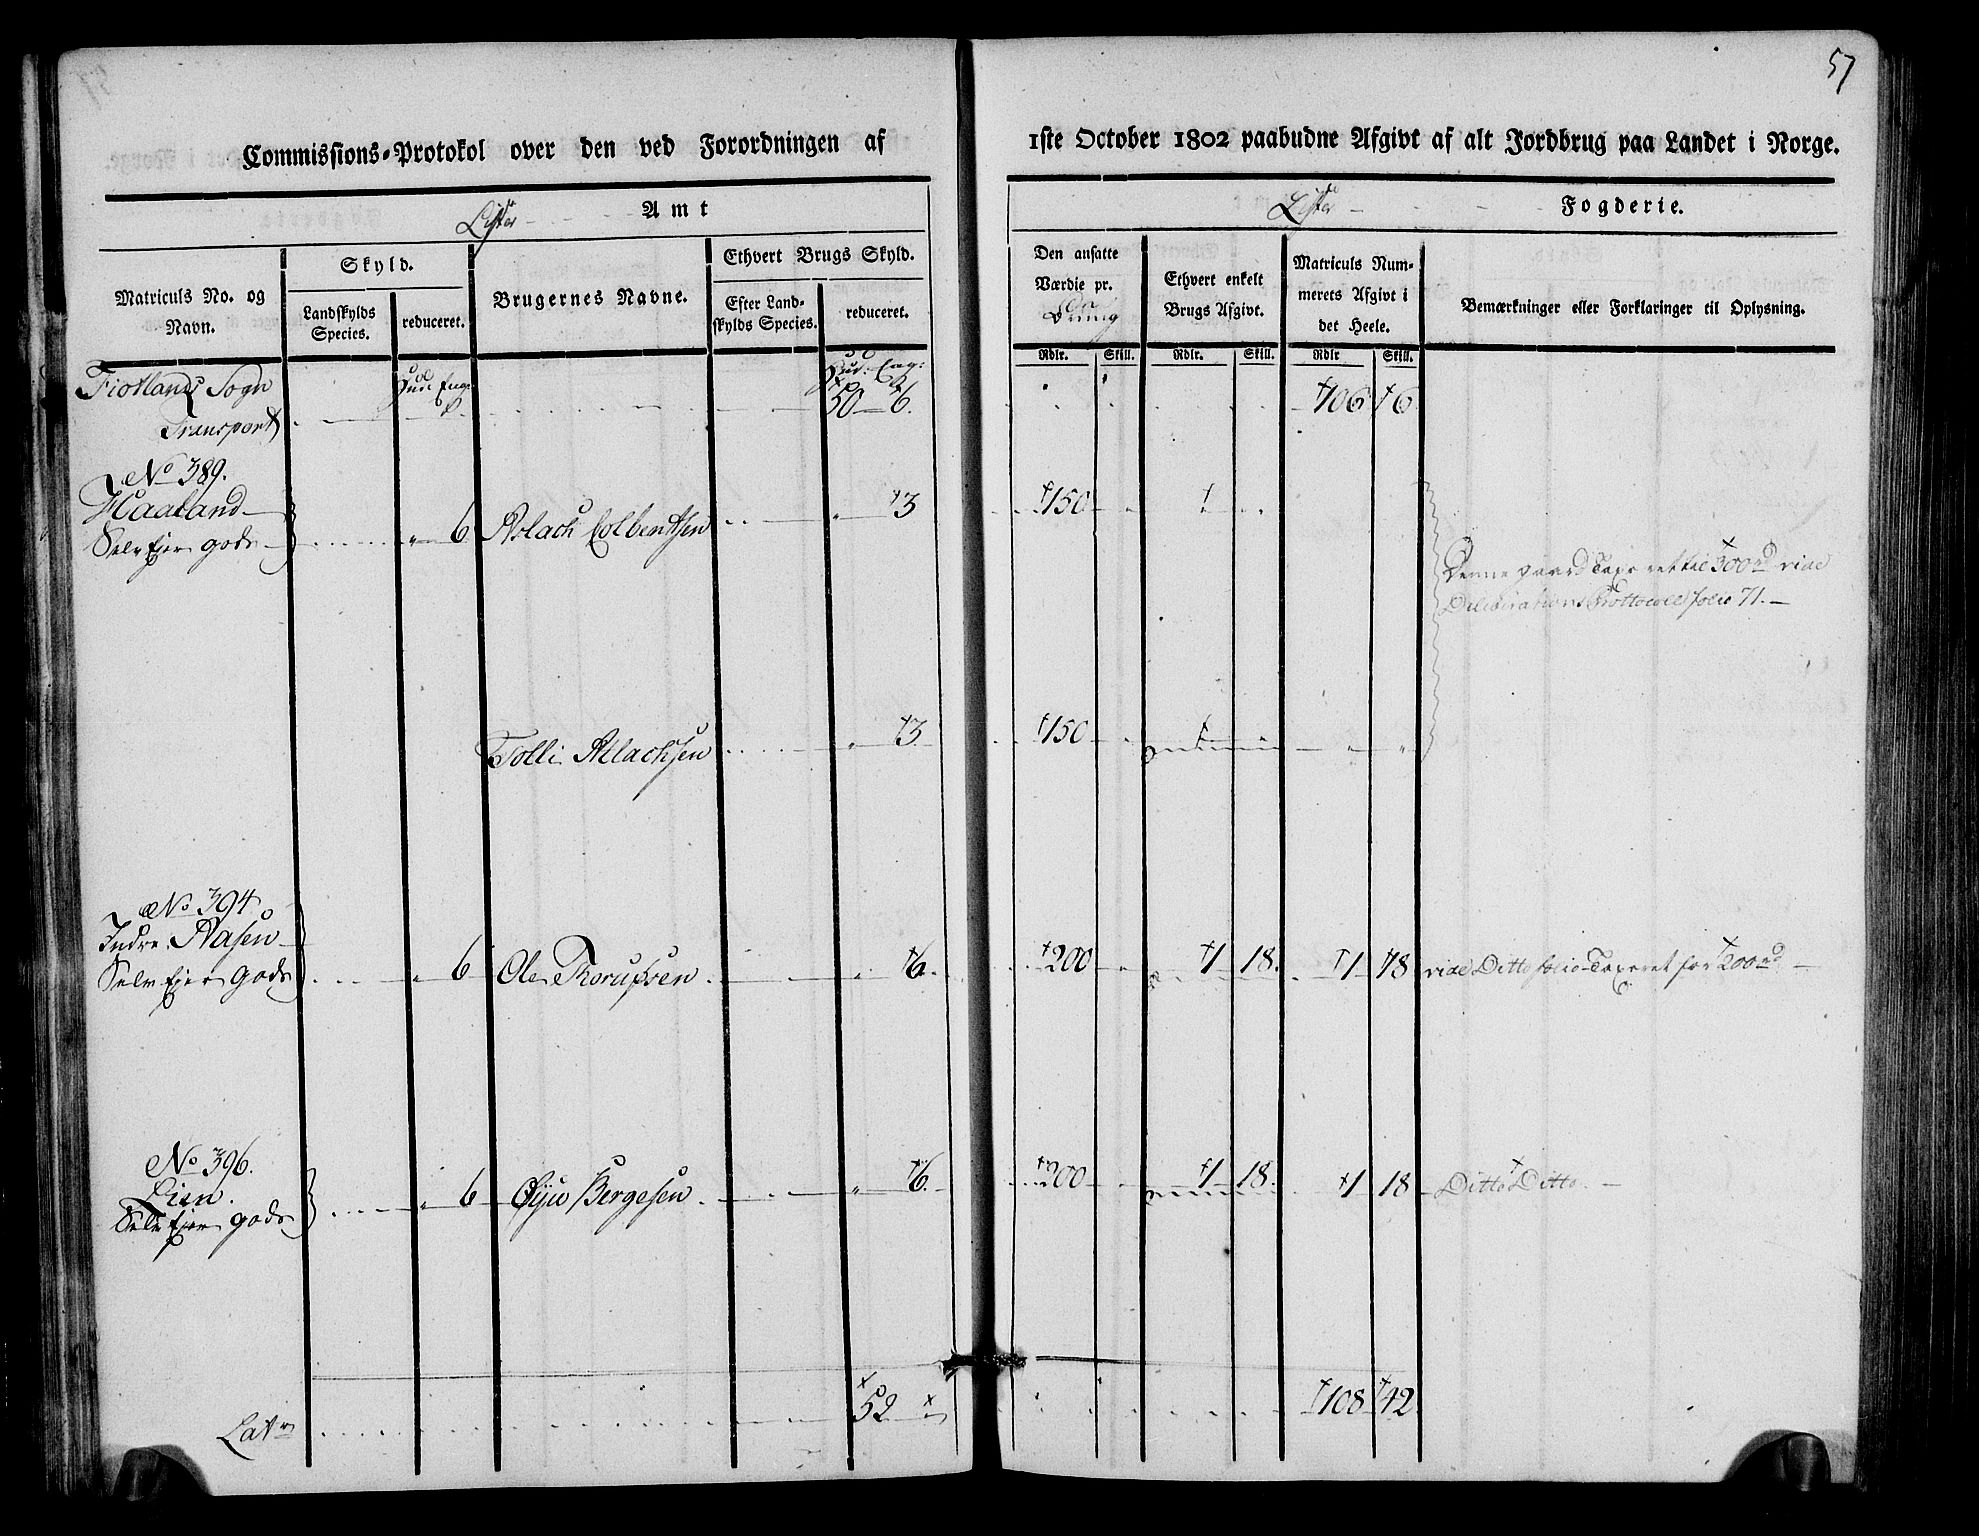 57
Commissions-Protokol over den ved Forordningen af
1ste October 1802 paabudne Afgivt af alt Jordbrug paa Landet i Norge.
Lister Amt
Lister Fogderie.
Matriculs No. og Navn.
Skyld.
Landskylds Species.
reduceret.
Brugernes Navne.
Ethvert Brugs Skyld.
Efter Landskylds Species.
reduceret.
Den ansatte Værdie pr. Brug
Ethvert enkelt Brugs Afgivt.
Matriculs Nummerets Afgivt i det Heele.
Bemærkninger eller Forklaringer til Oplysning.
Rdlr. Skill. Rdlr. Skill. Rdlr Skill.
Fiotlands Sogn Hud: Eng: Hud: Eng:
Transport 50 6. 106 6
No 389.
Haaland
Selv Ejer gods 6 Aslach Colbentsen 3 150
Denne gaard Taxeret til 300 rd vide
Deliberations Prottocoll folio 71.
Tolli Atlachsen 3 150
No 394
Indre Aasen
Selv Ejer Gods 6 Ole Thorufsen 6. 200 1 18. 1 18 vide Ditto folio Taxeret for 200 rd
No 396.
Lien.
Selv Ejer gods 6 Øiju Bergesen 6. 200 1 18. 1 18 Ditto Ditto.
Latr 52 108 42